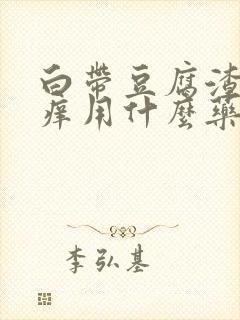 白带豆腐渣
痒用什麼藥
李弘基